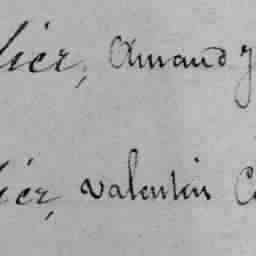 lier, Amand J
lier, Valentin C